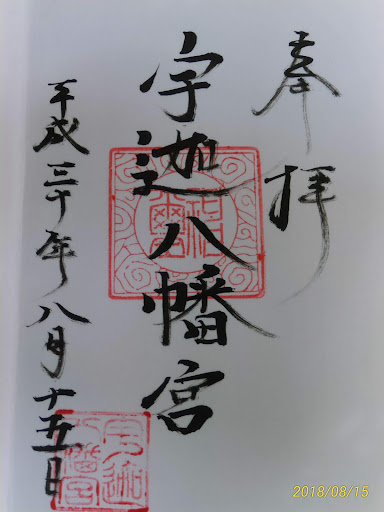 奉拝
宇迦八幡宮
平成三十年八月十五日
宇迦
八幡宮
2018/08/15